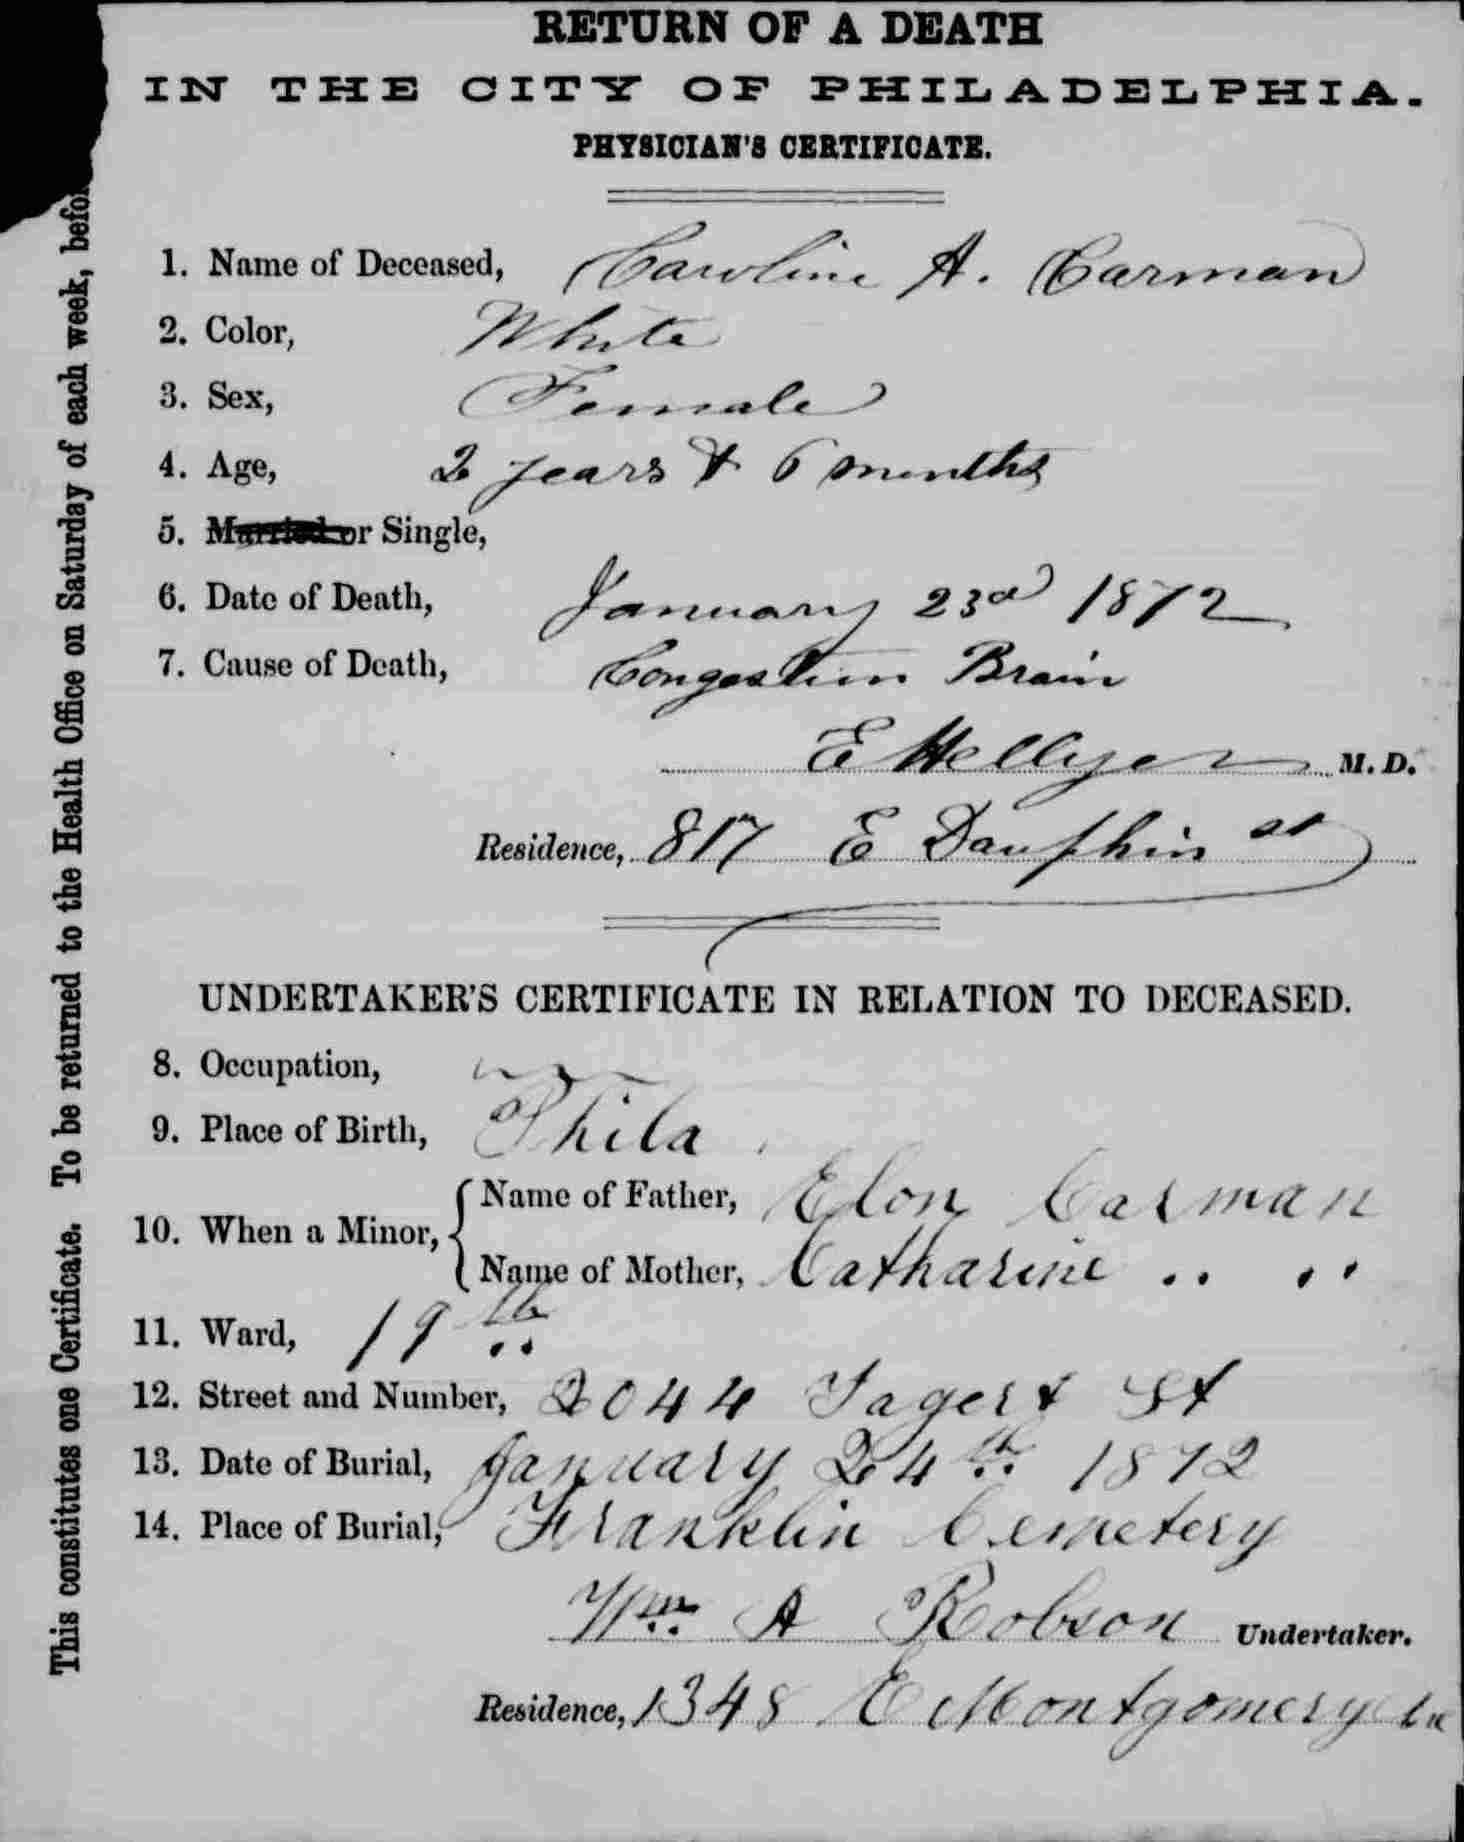 RETURN OF A DEATH
IN THE CITY OF PHILADELPHIA.
PHYSICIAN'S CERTIFICATE.
1. Name of Deceased, Caroline A. Carman
2. Color, White
3. Sex, Female
4. Age, 2 years & 6 months
5. Married or Single,
6. Date of Death, January 23d 1872
7. Cause of Death, Congestion Brain
E Hellyer M.D.
Residence, 817 E Dauphin st
UNDERTAKER'S CERTIFICATE IN RELATION TO DECEASED.
8. Occupation,
9. Place of Birth, Phila
10. When a Minor, { Name of Father, Elon Carman
Name of Mother, Catharine " "
11. Ward, 19th
12. Street and Number, 2044 Jagert St
13. Date of Burial, January 24th 1872
14. Place of Burial, Franklin Cemetery
Wm A Robson Undertaker.
Residence, 1348 E Montgomery
This constitutes one Certificate. To be returned to the Health Office on Saturday of each week, befor